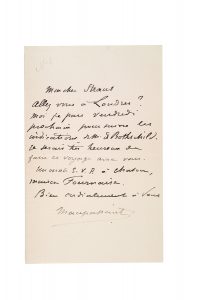 Mon cher Straus
Allez vous à Londres?
Moi je pars vendredi
prochain pour suivre les
indications de M. de Rothschild.
Je serais très heureux de
faire ce voyage avec vous.
Un mot S.V.P. à Chatou,
maison Fournaise.
Bien cordialement à vous
Maupassant